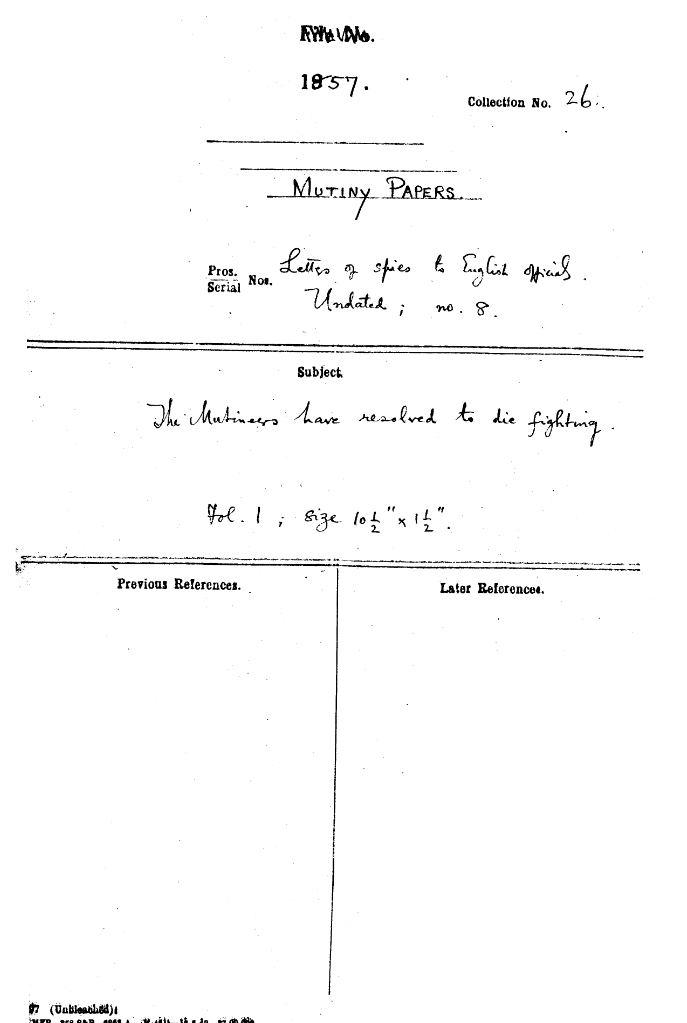 1857.
Collection No. 26.
MUTINY PAPERS.
Pros.
Serial Nos. Letters of spies to English officials.
Undated; no. 8.
Subject.
The Mutineers have resolved to die fighting.
Fol. 1; size 10 1/2" x 1 1/2".
Previous References.
Later References.
(Unbleached)